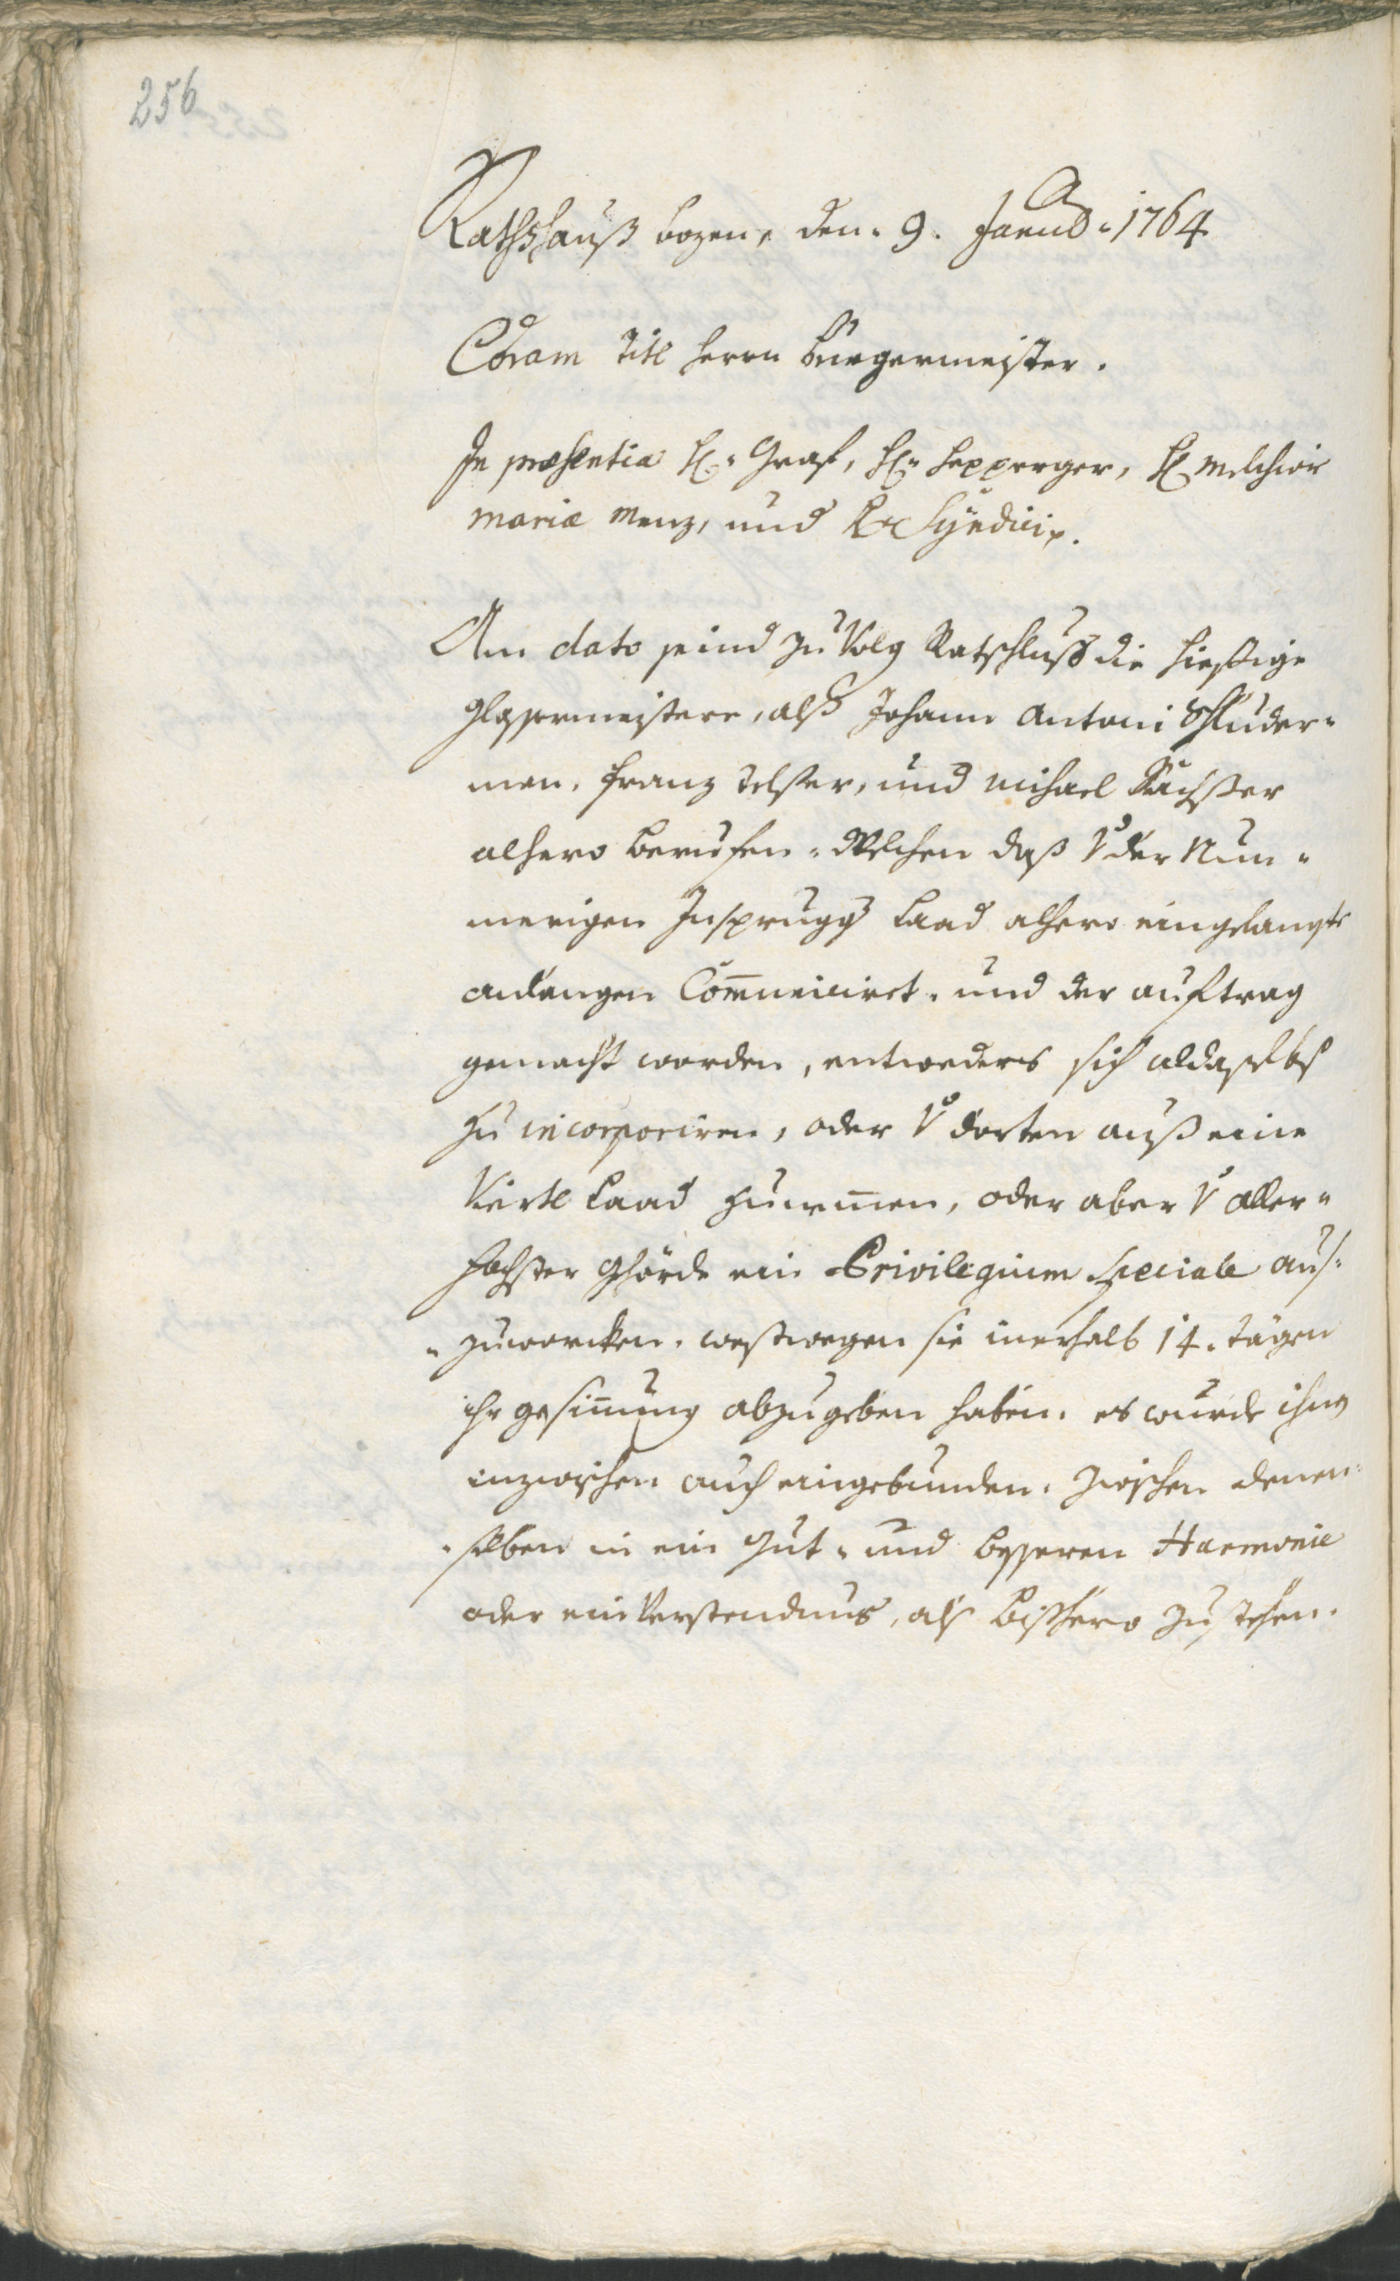 256
Rathshauß bozen, den 9. Jenner 1764
Coram Titl herrn burgermeister.
In præsentia H: Graf, H: hepperger, H Melchior
mariæ Menz, und Syndici.
Am dato seind zu Volg Ratschluß die hiesige
glasermeistere, alß Johann Antoni Schluder-
men, Franz Telser, und Michael
alhero beruefen, Welchen daß v der Nun-
merigen Insprugg Laad alhero eingelangte
anlangen Com̄unicirt, und der auftrag
gemacht worden, entweders sich aldaselbst
zu incorporiren, oder v dorten auß eine
Viertl Laad zunem̄en, oder aber v aller-
hechster Ghörde ein Privilegium Speciale aus-
zuworcken, westwegen sie inerhalb 14. tägen
ihr gesin̄ung abzugeben haben. es wurde ihnen
inzwischen auch eingebunden, zwischen denen-
selben in ein Gut- und bessern Harmonie
oder einverstendnus, als bishero zu stehen.